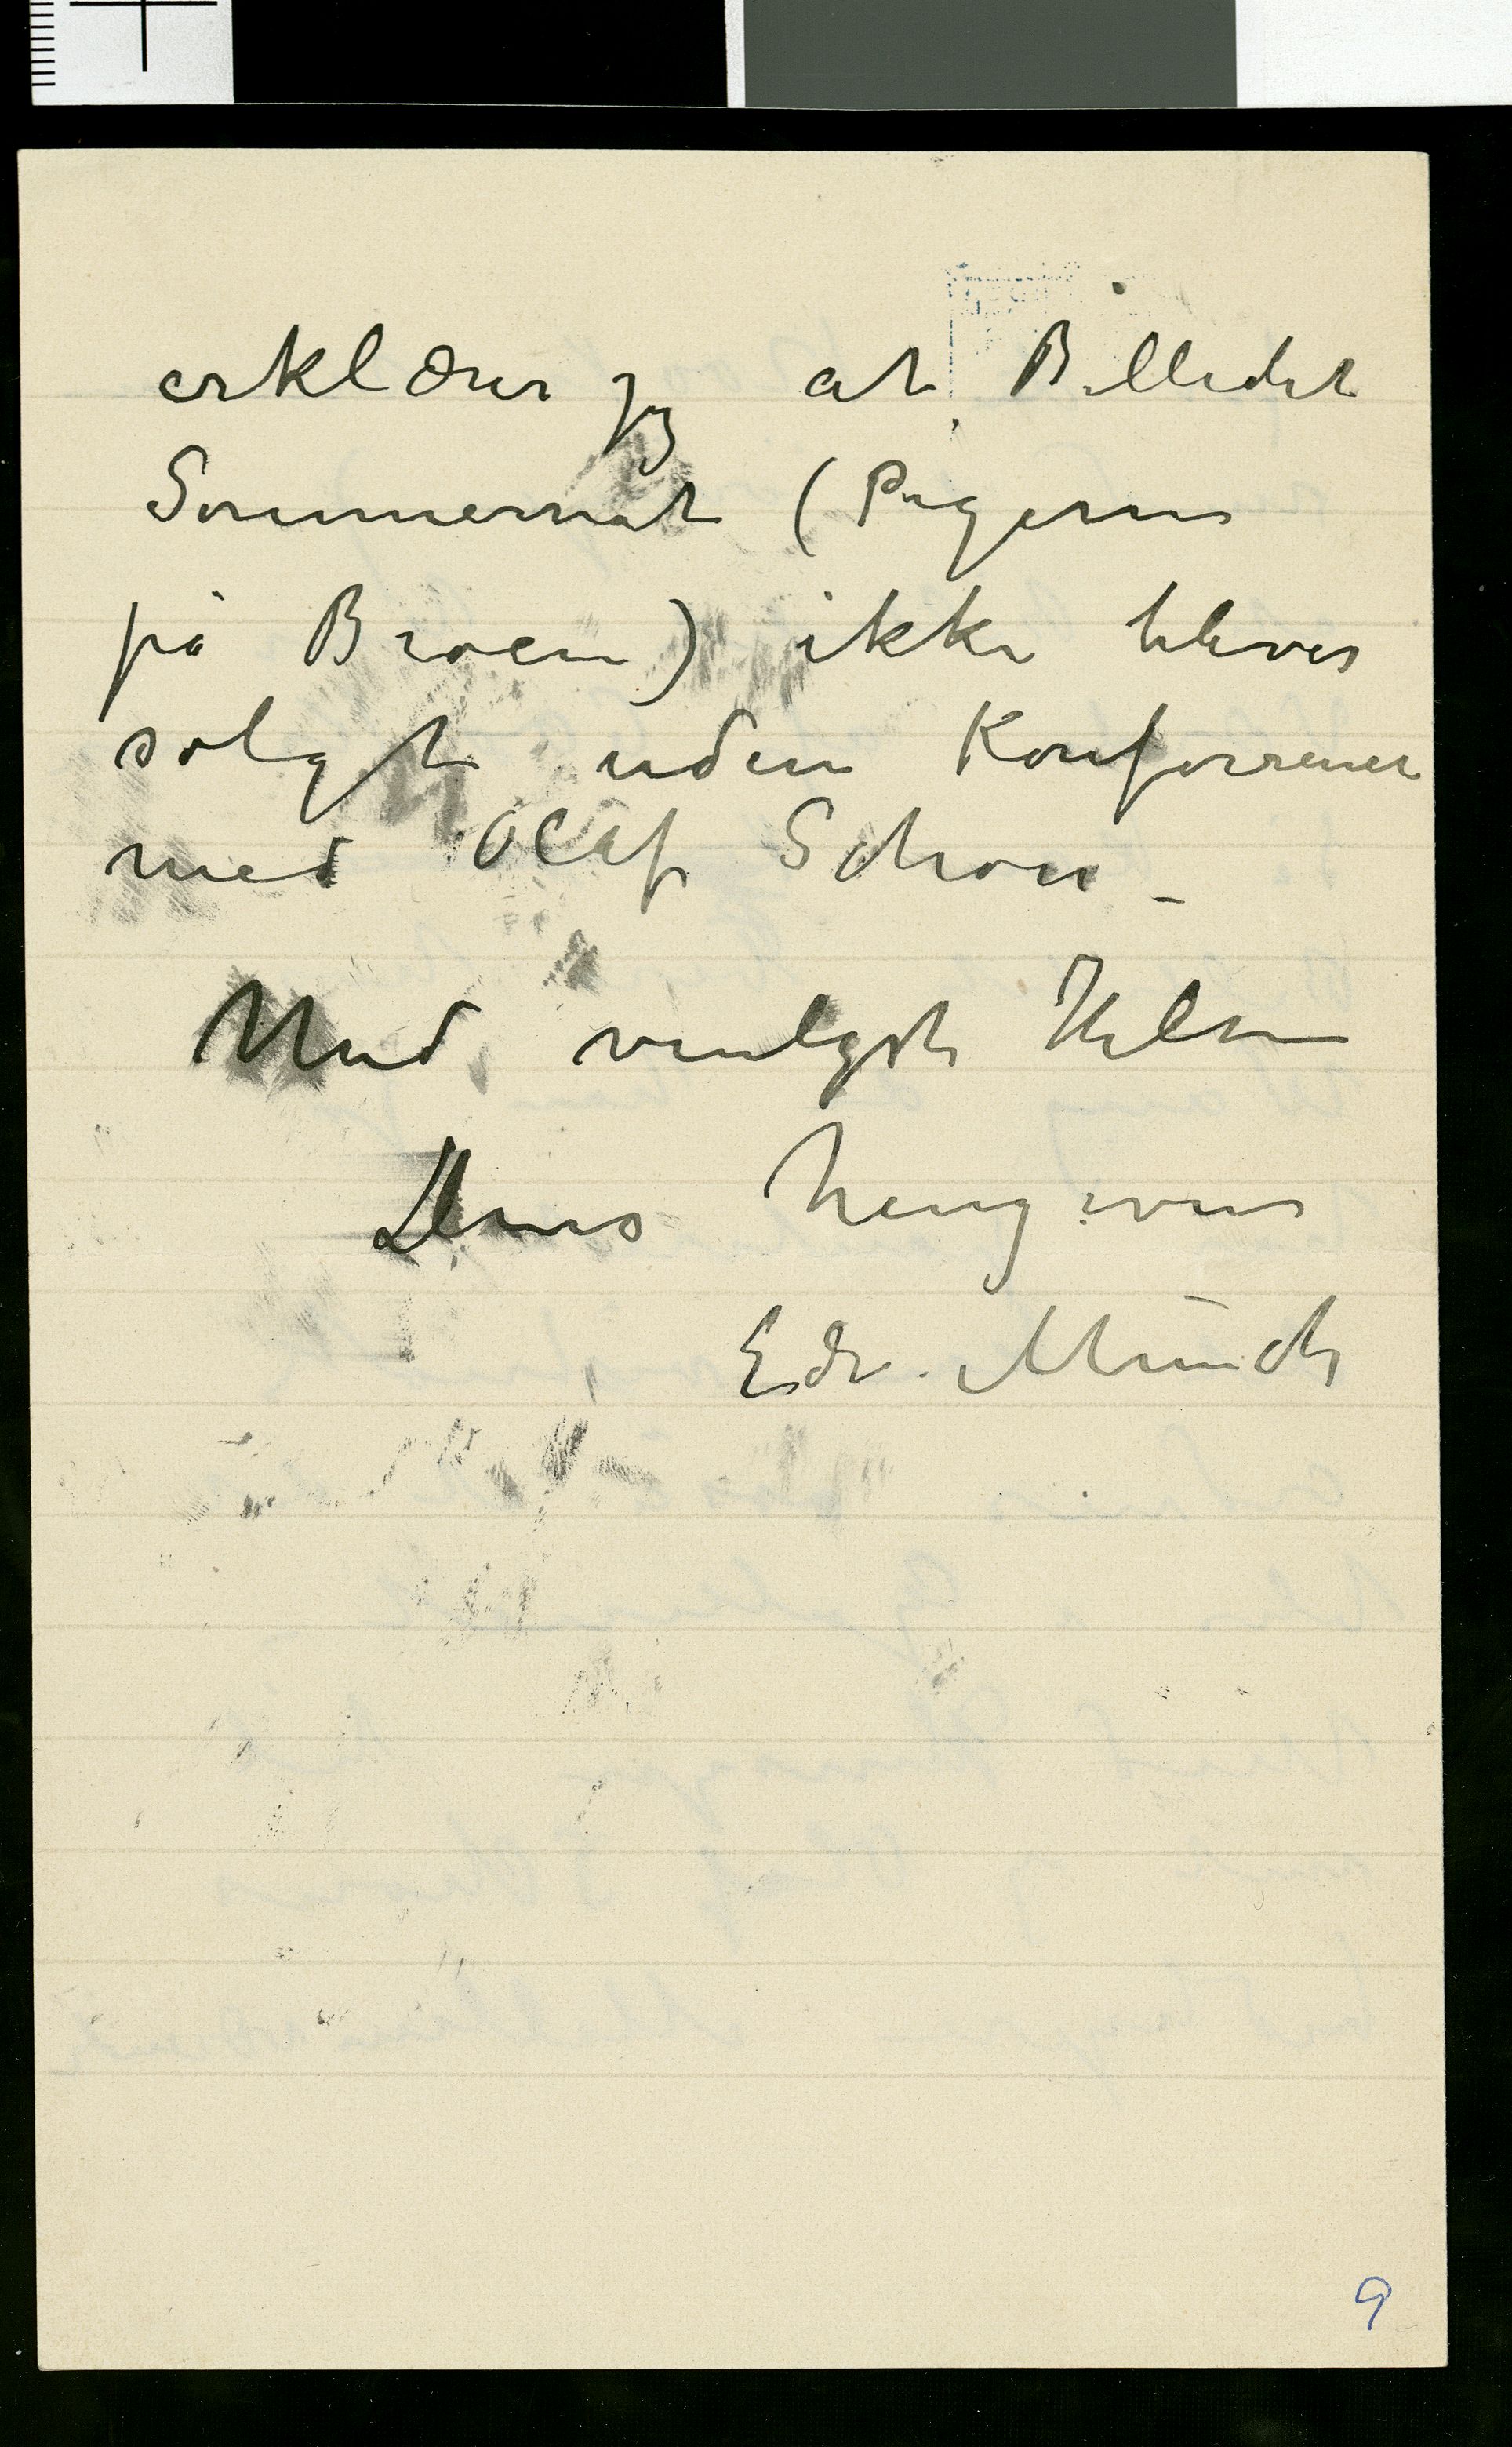 erklærer jeg at Billedet
Sommernat (Pigerne
på Broen) ikke bliver
solgt uden Konferrence
med Olaf Schou _
Med venligste Hilsen
Deres hengivne
Edv. Munch
9